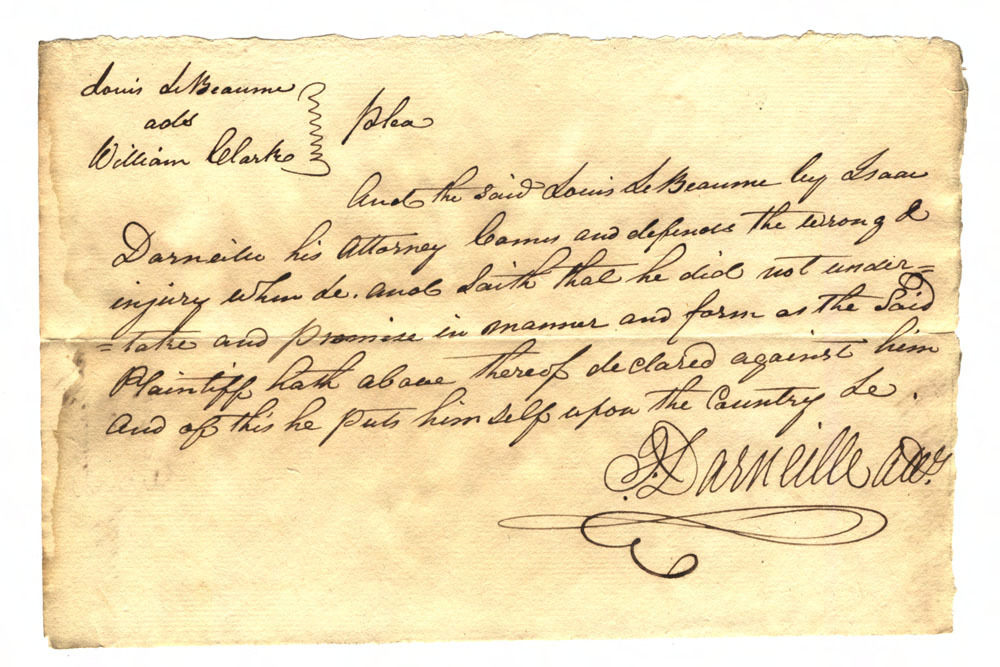 Louis LeBeaume
ads
William Clark
Plea
And the said Louis LeBeaume by Isaac
Darneille his Attorney Comes and defends the wrong &
injury when &c. and Saith that he did not under=
=take and promise in manner and form as the Said
Plaintiff hath above thereof declared against him
and of this he puts himself upon the Country &c.
I. Darneille atty.